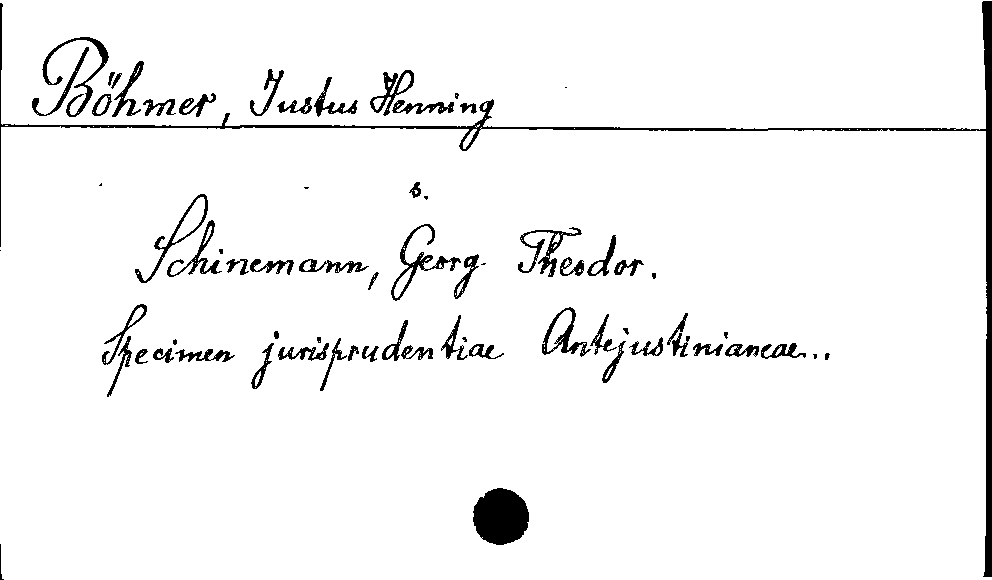 Böhmer, Justus Henning
s.
Schinemann, Georg Theodor.
Specimen jurisprudentiae Antejustinianeae...